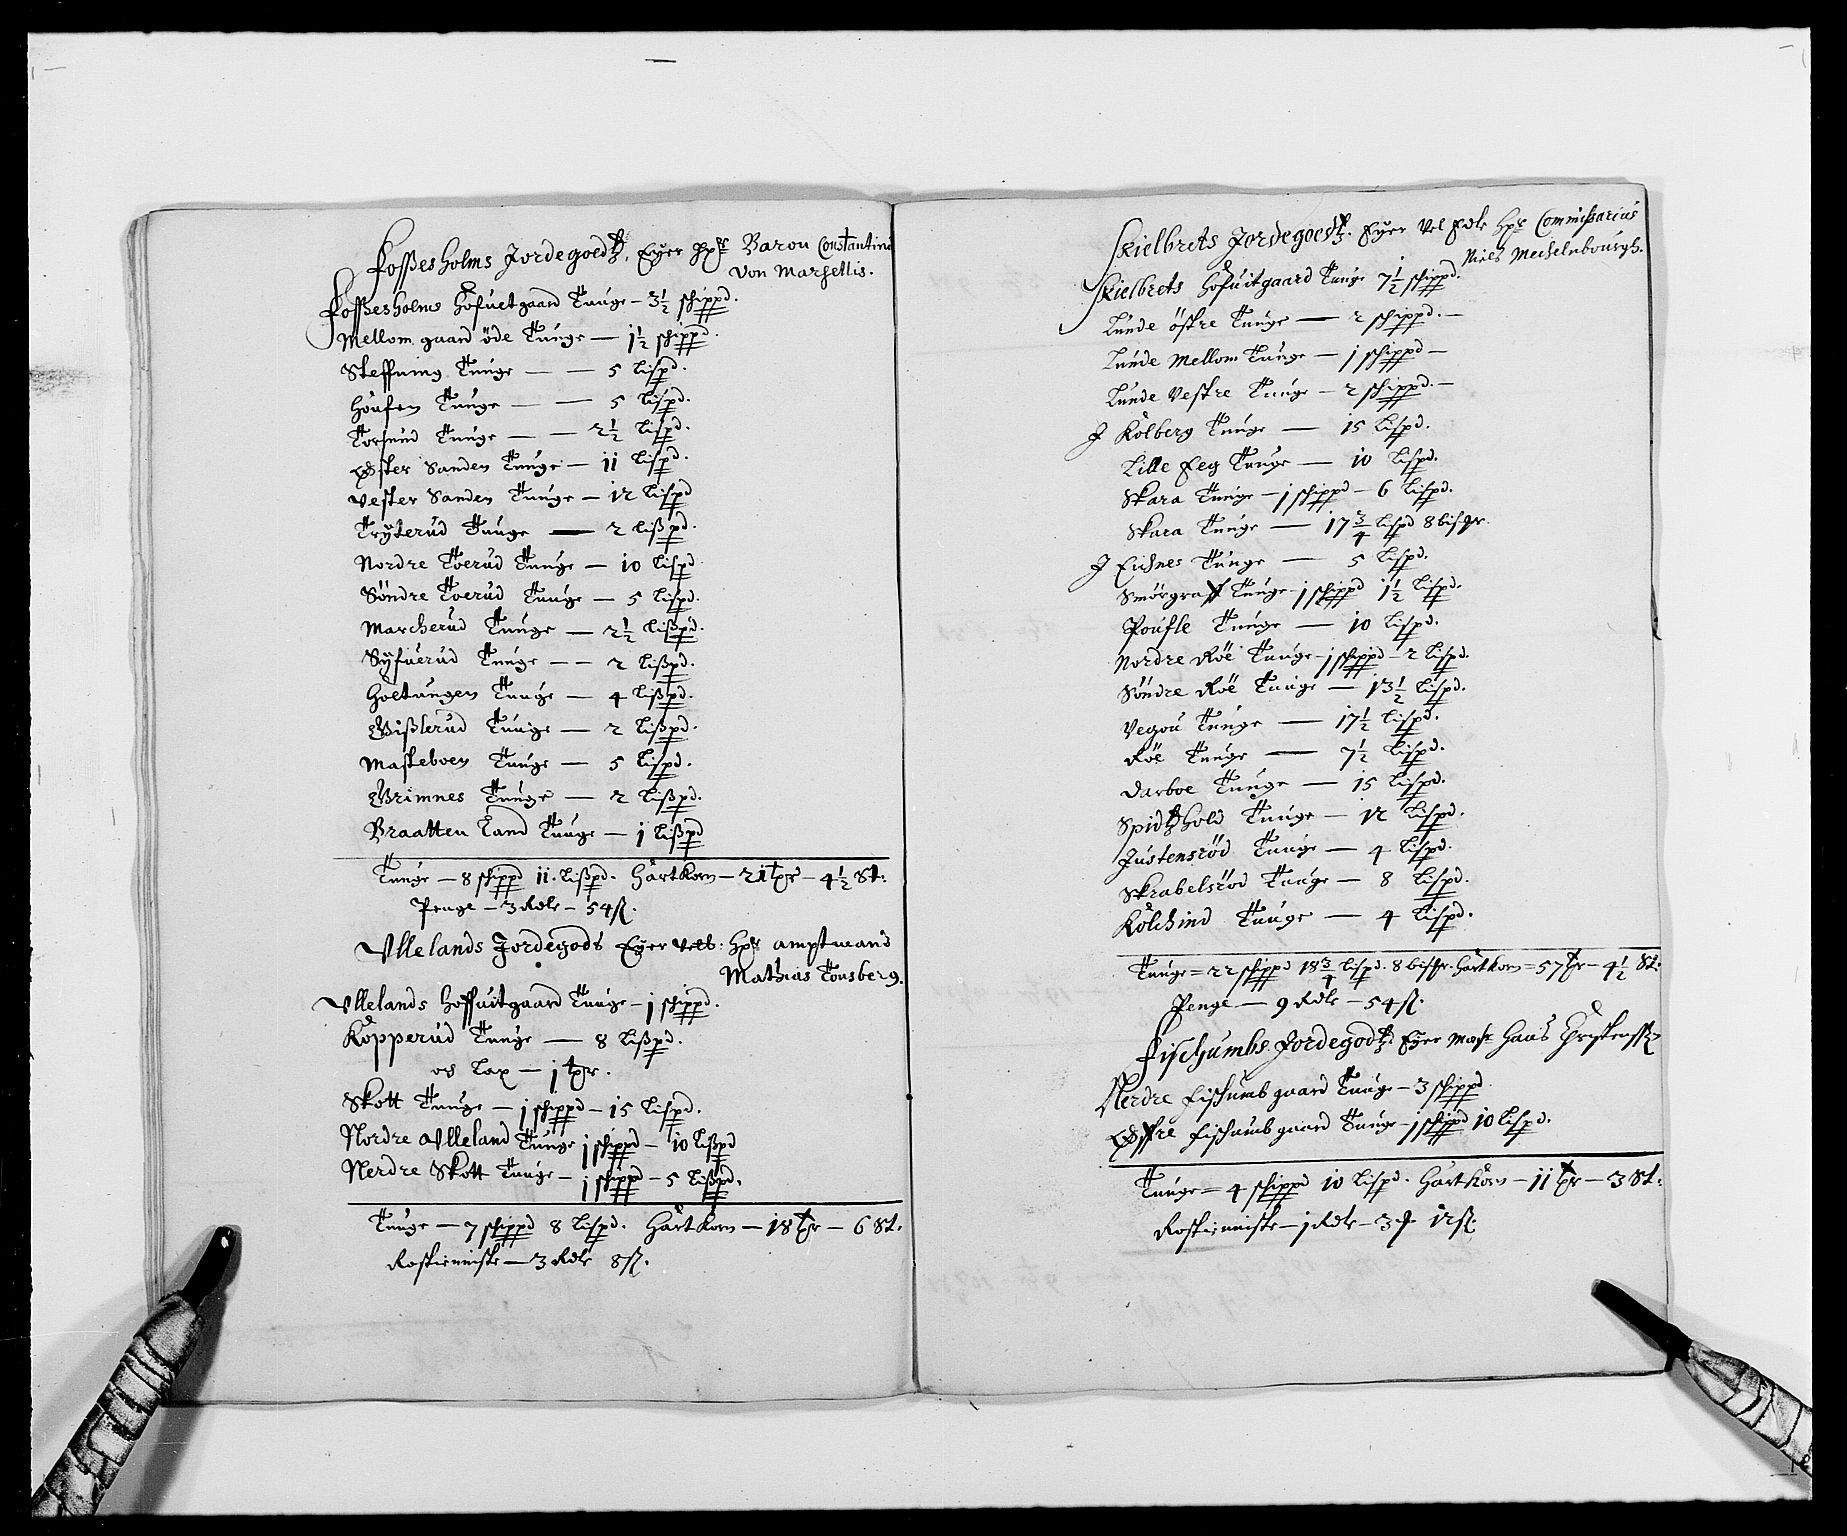 Fossesholms Jordegoedtz, Eyer Hr Baron Constantinus
Von Marsellis.
Fossesholms Hofuetgaard Tunge – 3½ schippd.
Mellom gaard öde Tunge – 1½ schippd.
Steffning Tunge – – 5 Lispd.
Houfen Tunge – – 5 Lispd.
Torsrud Tunge – – 2½ Lispd.
Øster Sanden Tunge – 11 Lispd.
Vester Sanden Tunge – 12 Lispd
Tryterud Tunge – 2 Lißpd.
Nordre Toerud Tunge – 10 Lispd
Söndre Toerud Tunge – 5 Lispd.
Marcherud Tunge – 2½ Lißpd.
Syfuerud Tunge – – 2 Lißpd.
Holtungen Tunge – 4 Lißpd.
Gißlerud Tunge – 2 Lißpd.
Masteboen Tunge – 5 Lispd.
Grimnes Tunge – 2 Lißpd.
Braatten Land Tunge – 1 Lißpd
Tunge – 8 schippd 11. Lißpd. Hartkorn – 21 tr – 4½ St:
Penge – 3 Rdlr – 54 sl.
Ullelands Jordegods Eyer Velb: Hr amptmand
Mathias Tonsberg.
Ullelands Hoffuitgaard Tunge – 1 schippd.
Kopperud Tunge – 8 Lißpd.
oc Lax – 1 tr.
Skott Tunge – 1 schippd – 15 Lispd.
Nordre Ulleland Tunge 1 schippd – 10 Lißpd
Nerdre Skott Tunge – 1 schippd – 5 Lißpd.
Tunge – 7 schippd 8 Lispd. Hartkorn – 18 tr – 6 St:
Rostienniste – 3 Rdlr 8 sl.
Skielbrets Jordegoedtz. Eyer Vel Edle Hr Commissarius
Niels Mechelnbourgh.
Skielbrets Hofuitgaard Tunge 7½ schippd.
Lunde östre Tunge – 2 schippd. –
Lunde Mellom Tunge – 1 schippd –
Lunde Vestre Tunge – 2 schippd. –
J Kolberg Tunge – 15 Lispd.
Lille Eeg Tunge – 10 Lispd.
Skara Tunge – 1 schippd – 6 Lispd.
Skara Tunge – 17¾ Lispd 8 bispr.
J Eichnes Tunge – 5 Lispd.
Smörgraff Tunge – 1 schippd 1½ Lispd.
Poufle Tunge – 10 Lispd.
Nordre Röe Tunge – 1 schippd – 2 Lispd.
Söndre Röe Tunge – 13½ Lispd.
Vegou Tunge – 17½ Lispd.
Röe Tunge – 7½ Lispd.
Darboe Tunge – 15 Lispd.
Spidtzhold Tunge – 12 Lispd.
Justensröd Tunge – 4 Lispd.
Skrabelsröd Tunge – 8 Lispd.
Kolchind Tunge – 4 Lispd.
Tunge = 22 schippd 18¾ Lispd. 8 bispr. Hartkorn = 57 tr – 4½ St:
Penge – 9 Rdlr – 54 sl.
Fischumbs Jordegodtz Eyer Mostr Hans
Nerdre Fischumb gaard Tunge – 3 schippd.
Øffre Fischumb gaard Tunge – 1 schippd 10 Lispd.
Tunge = 4 schippd 10 Lispd. Hartkorn – 11 tr – 3 St:
Rostienniste – 1 Rdlr – 3 12 sl.